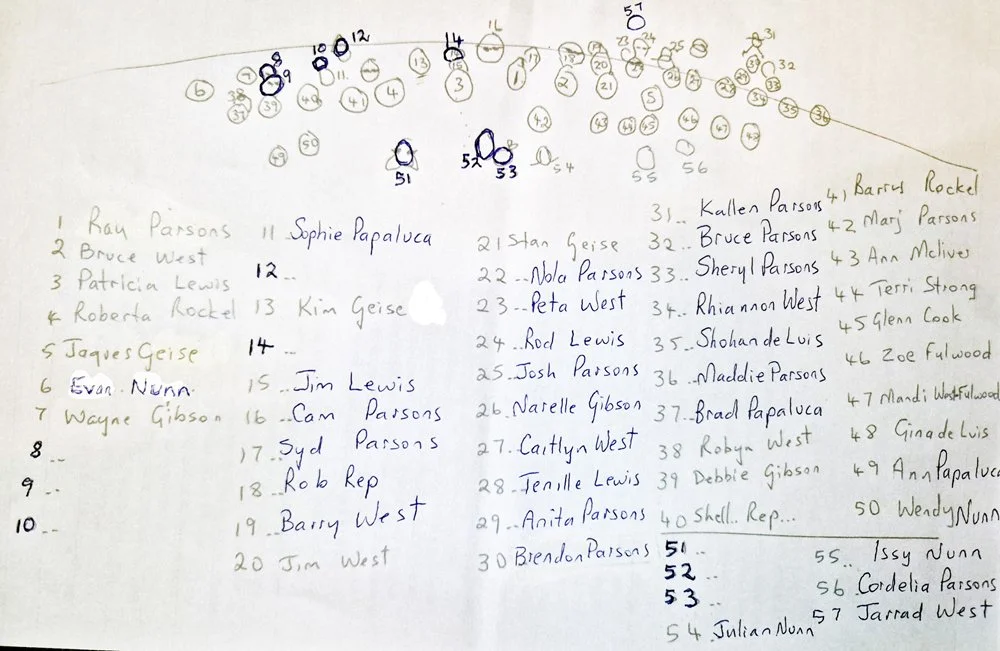 1 Ray Parsons
2 Bruce West
3 Patricia Lewis
4 Roberta Rockel
5 Jaques Geise
6 Evan Nunn
7 Wayne Gibson
8 ..
9 ..
10 ..
11 Sophie Papaluca
12 ..
13 Kim Geise
14 ..
15 .. Jim Lewis
16 .. Cam Parsons
17 .. Syd Parsons
18 .. Rob Rep
19 .. Barry West
20 Jim West
21 Stan Geise
22 .. Nola Parsons
23 .. Peta West
24 .. Rod Lewis
25 .. Josh Parsons
26 .. Narelle Gibson
27 .. Caitlyn West
28 .. Tenille Lewis
29 .. Anita Parsons
30 Brendon Parsons
31 .. Kallen Parsons
32 .. Bruce Parsons
33 .. Sheryl Parsons
34 .. Rhiannon West
35 .. Shohan de Luis
36 .. Maddie Parsons
37 .. Brad Papaluca
38 Robyn West
39 Debbie Gibson
40 Shell.. Rep...
41 Barrys Rockel
42 Marj Parsons
43 Ann McIiver
44 Terri Strong
45 Glenn Cook
46 Zoe Fulwood
47 Mandi West-Fulwood
48 Gina de Luis
49 Ann Papaluca
50 Wendy Nunn
51 ..
52 ..
53 ..
54 Julian Nunn
55 .. Issy Nunn
56 Cordelia Parsons
57 Jarrad West